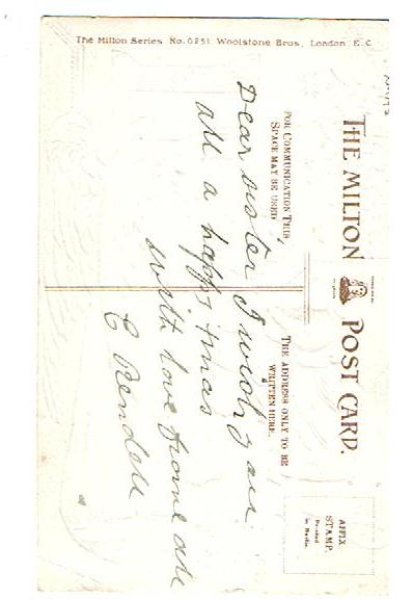 The Milton Series No. 0251 Woolstone Bros., London E.C.
THE MILTON POST CARD.
FOR COMMUNICATION THIS
SPACE MAY BE USED
THE ADDRESS ONLY TO BE
WRITTEN HERE.
AFFIX
STAMP.
Printed
in Berlin.
Dear sister I wish you
all a happy Xmas
with love from all
C Rendell